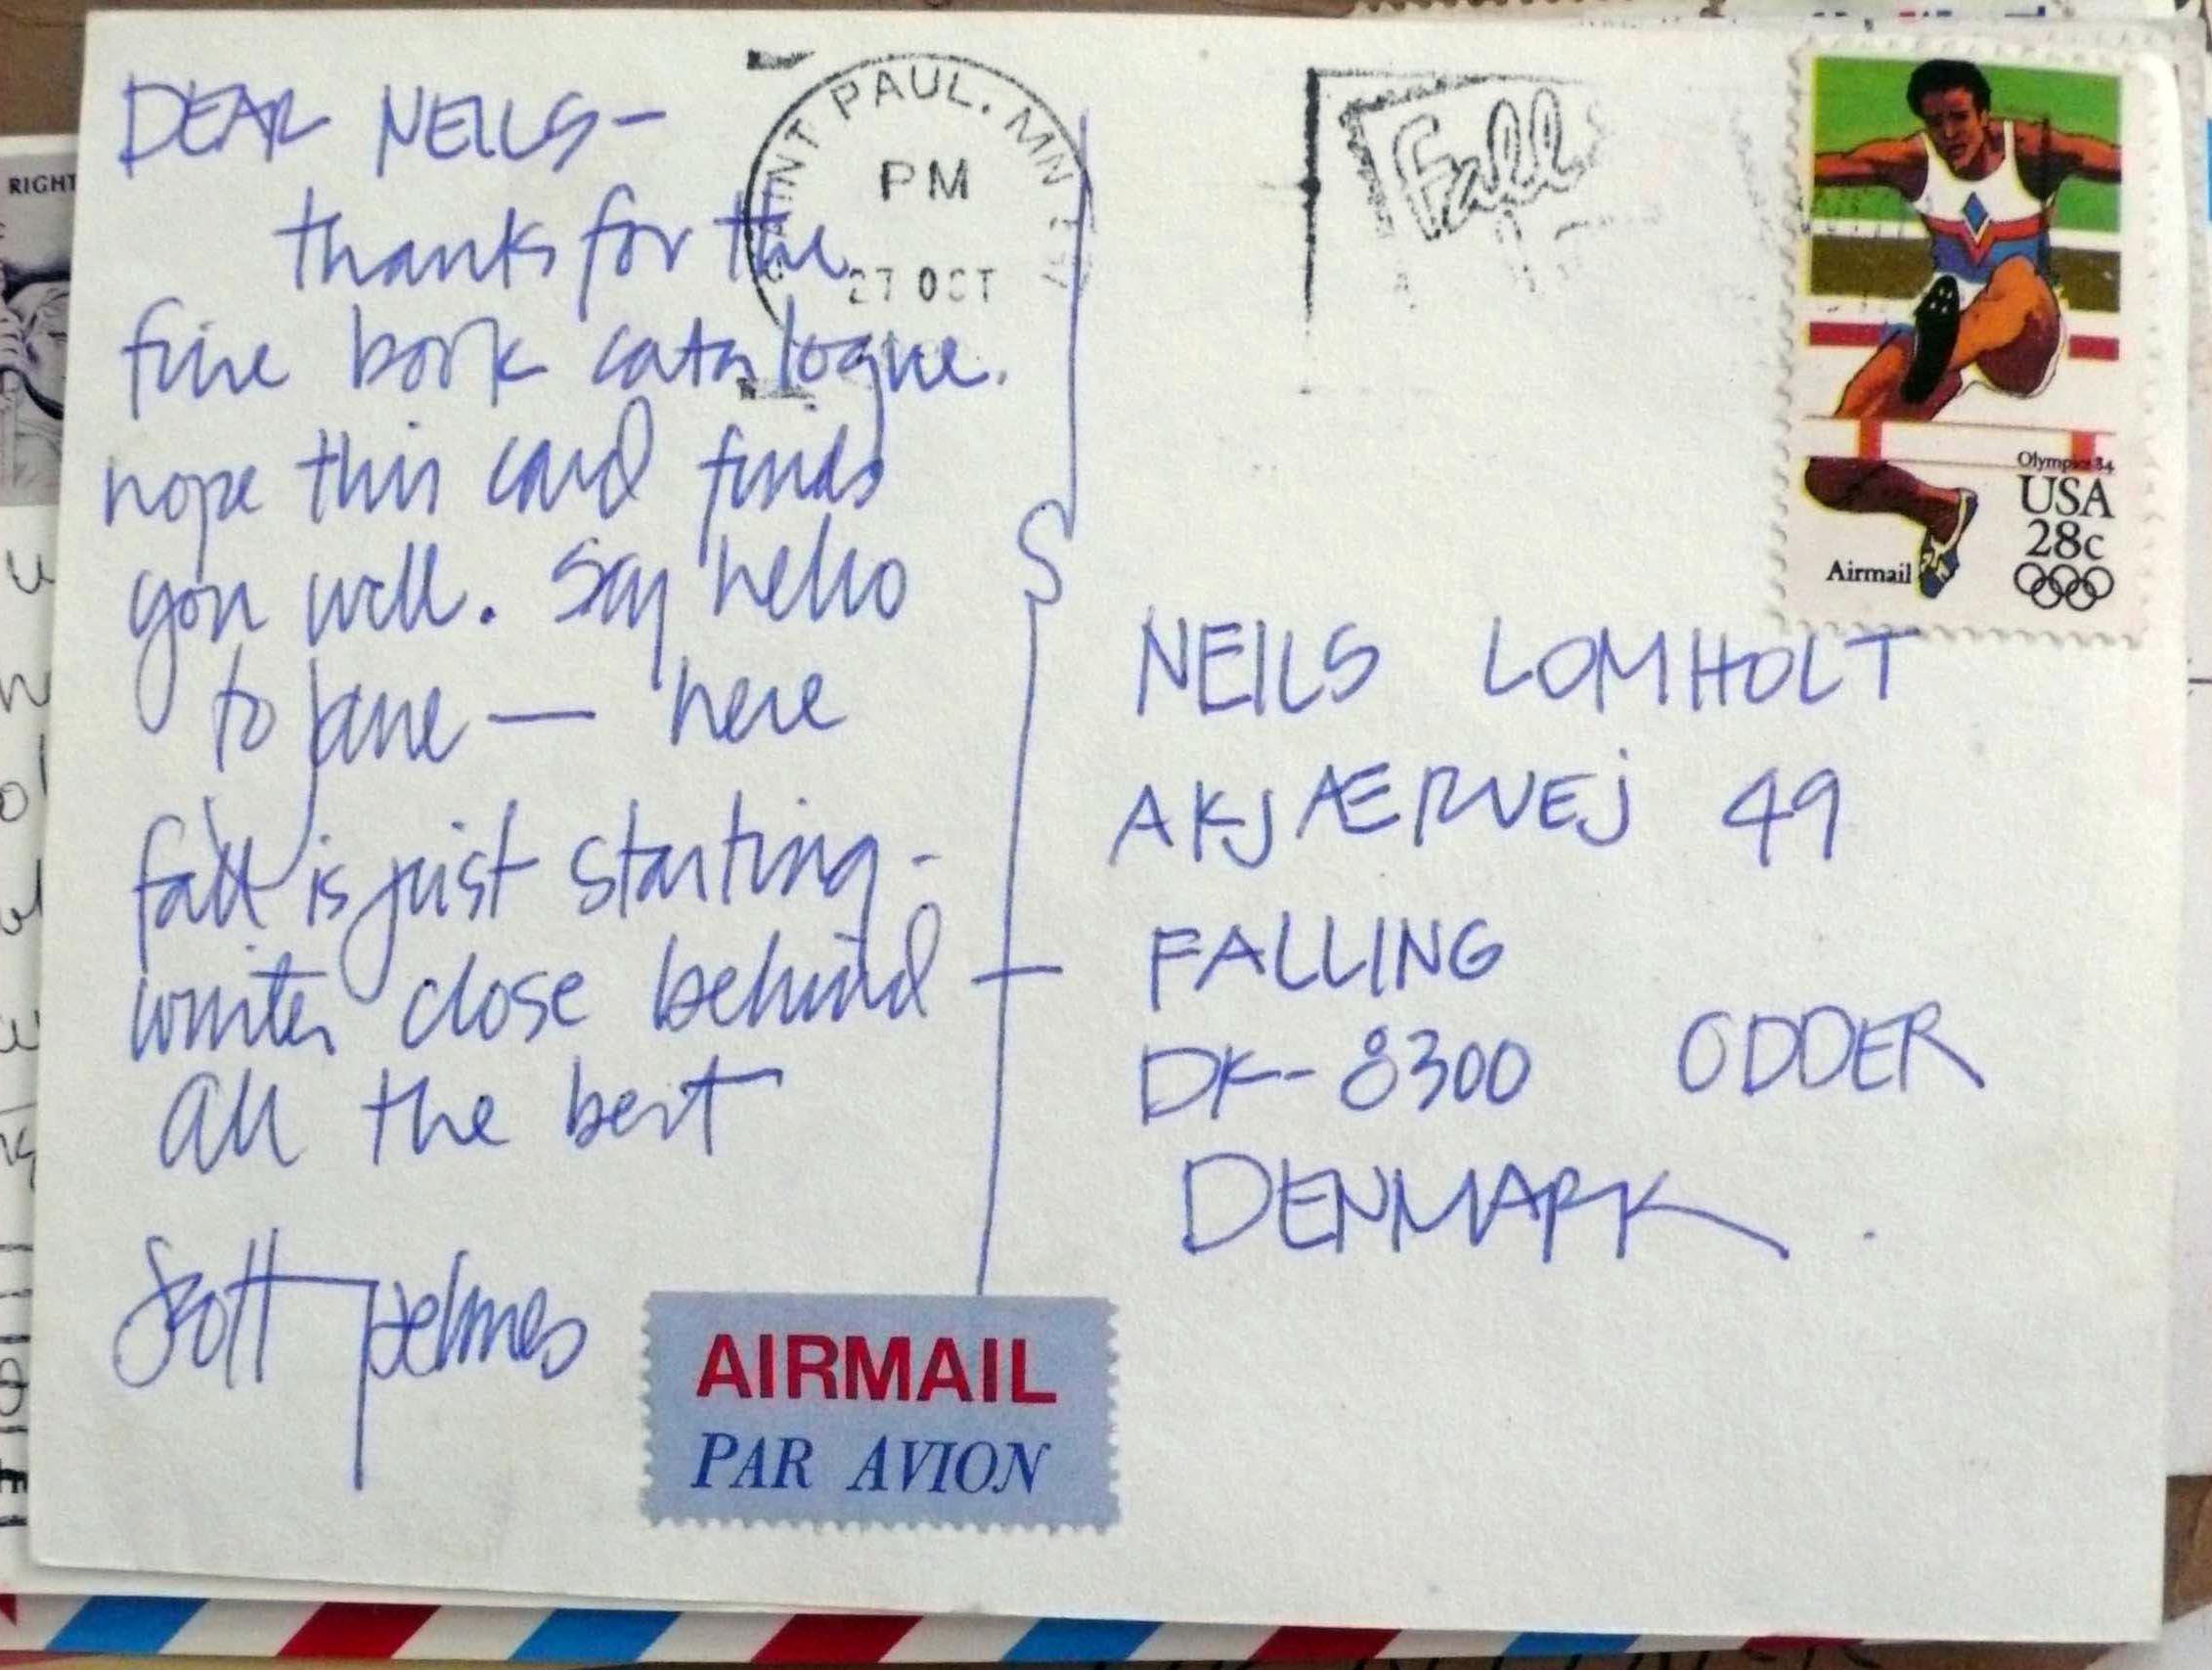 DEAR NEILS-
thanks for the
fine book catalogue.
hope this card finds
you well. Say hello
to Jane — here
fall is just starting -
winter close behind —
all the best
Scott Helmes
SAINT PAUL, MN
PM
27 OCT
Fall
Olympics 84
USA
28c
Airmail
NEILS LOMHOLT
AKJÆRVEJ 49
FALLING
DK-8300 ODDER
DENMARK
AIRMAIL
PAR AVION
RIGHT